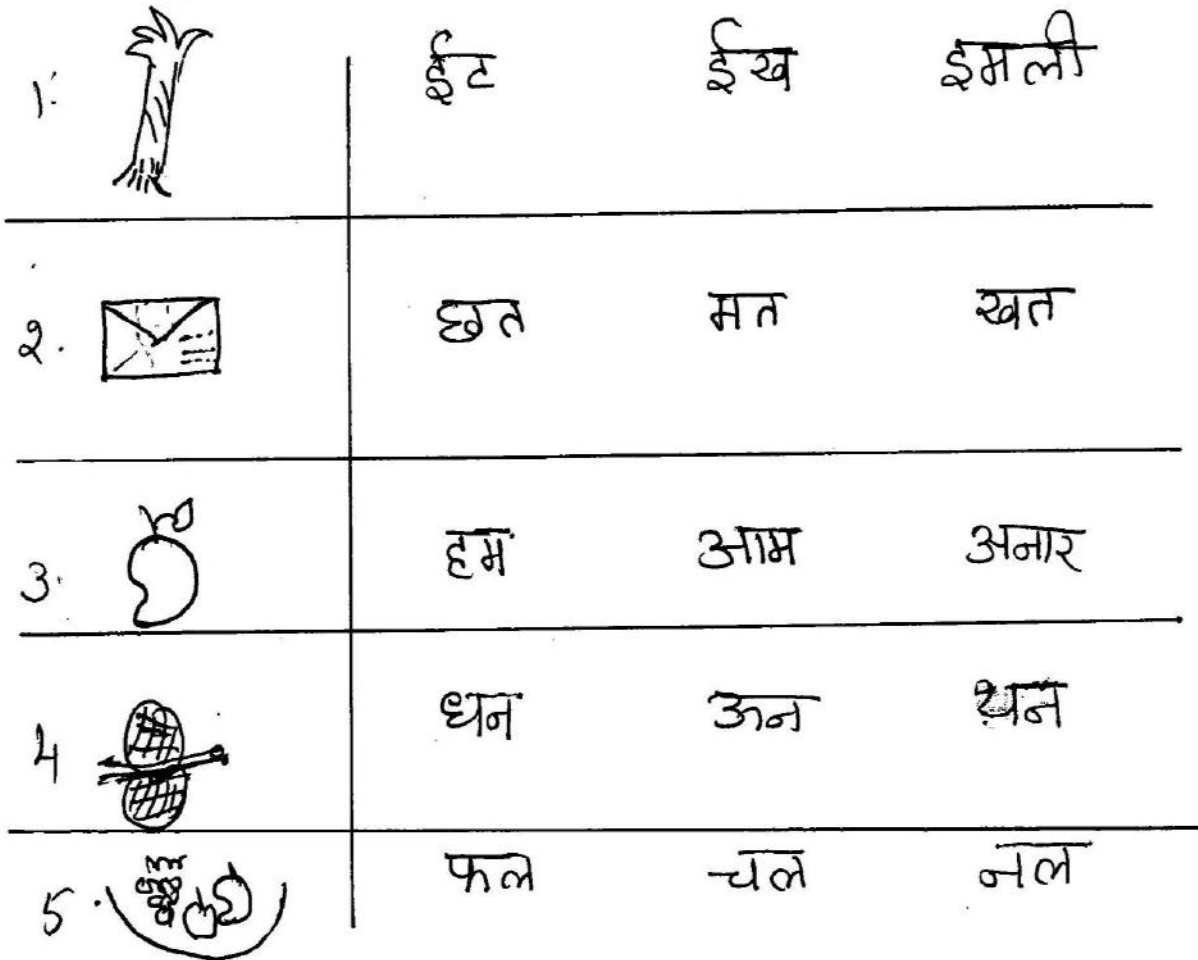 1. ईट ईख इमली
2. छत मत खत
3. हम आम अनार
4 धन ऊन थन
5. फल चल नल